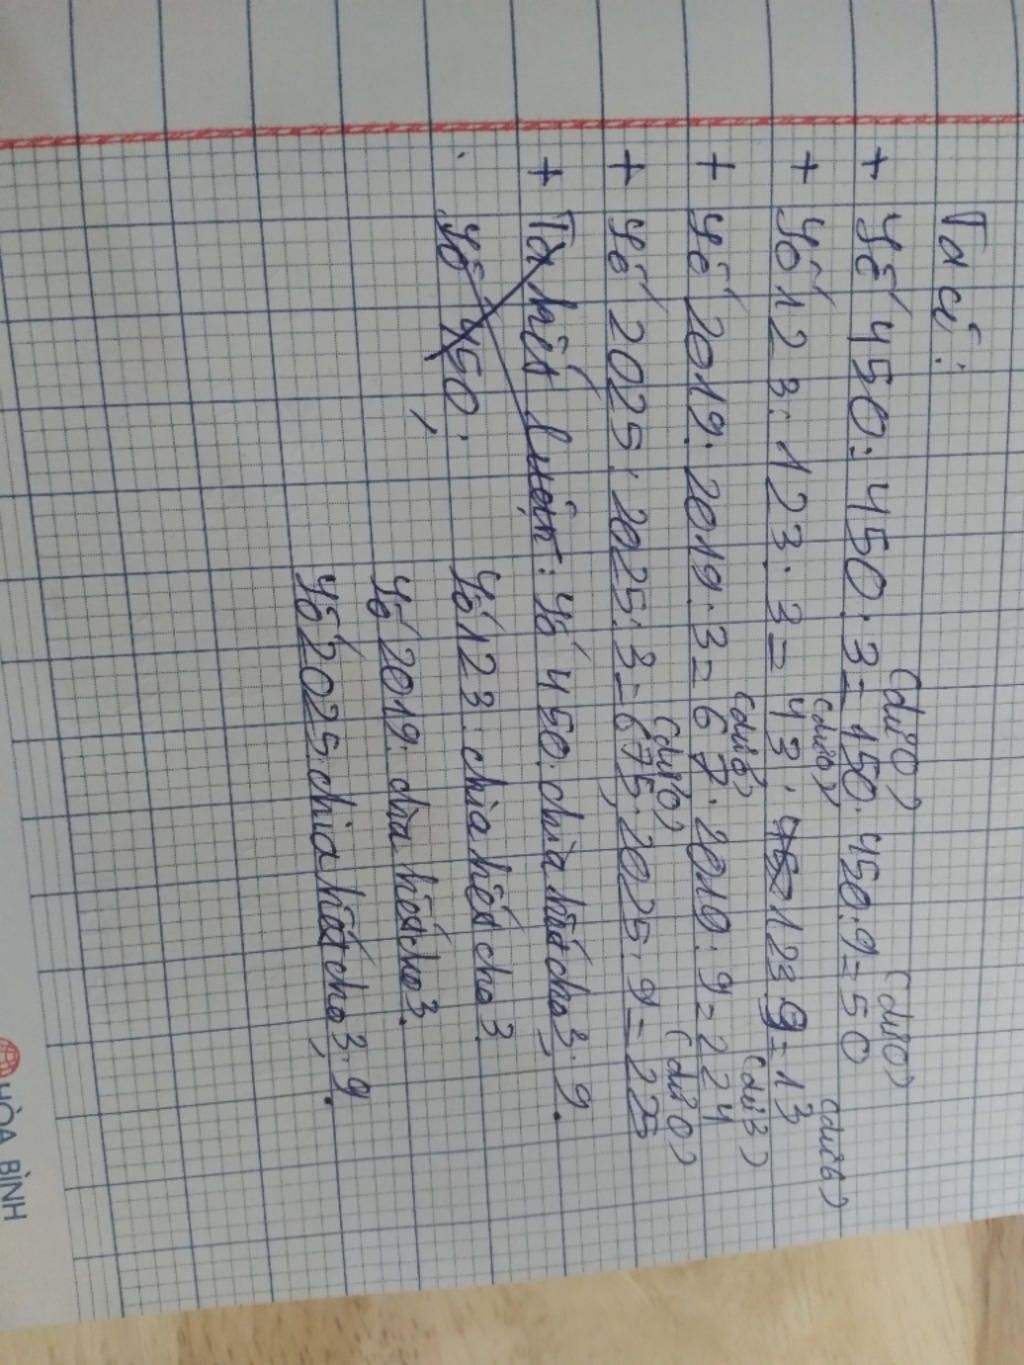 Ta có:
(dư 0) (dư 0)
+ Số 450: 450 : 3 = 150. 450 : 9 = 50
(dư 0) (dư 6)
+ Số 123: 123 : 3 = 43. 123 9 = 13
(dư 0) (dư 3)
+ Số 2019: 2019 : 3 = 67. 2019 : 9 = 224
(dư 0) (dư 0)
+ Số 2025: 2025 : 3 = 675. 2025 : 9 = 225
+ Ta kết luận: Số 450: chia hết cho 3, 9.
Số 450. Số 123: chia hết cho 3
Số 2019: chia hết cho 3.
Số 2025: chia hết cho 3, 9.
HÒA BÌNH